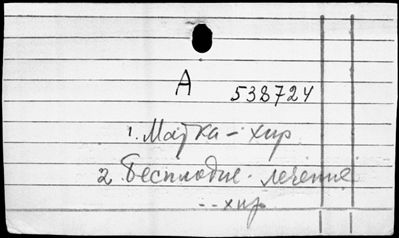 А 538724
1. Матка – хир
2. Бесплодие - лечение
-- хир